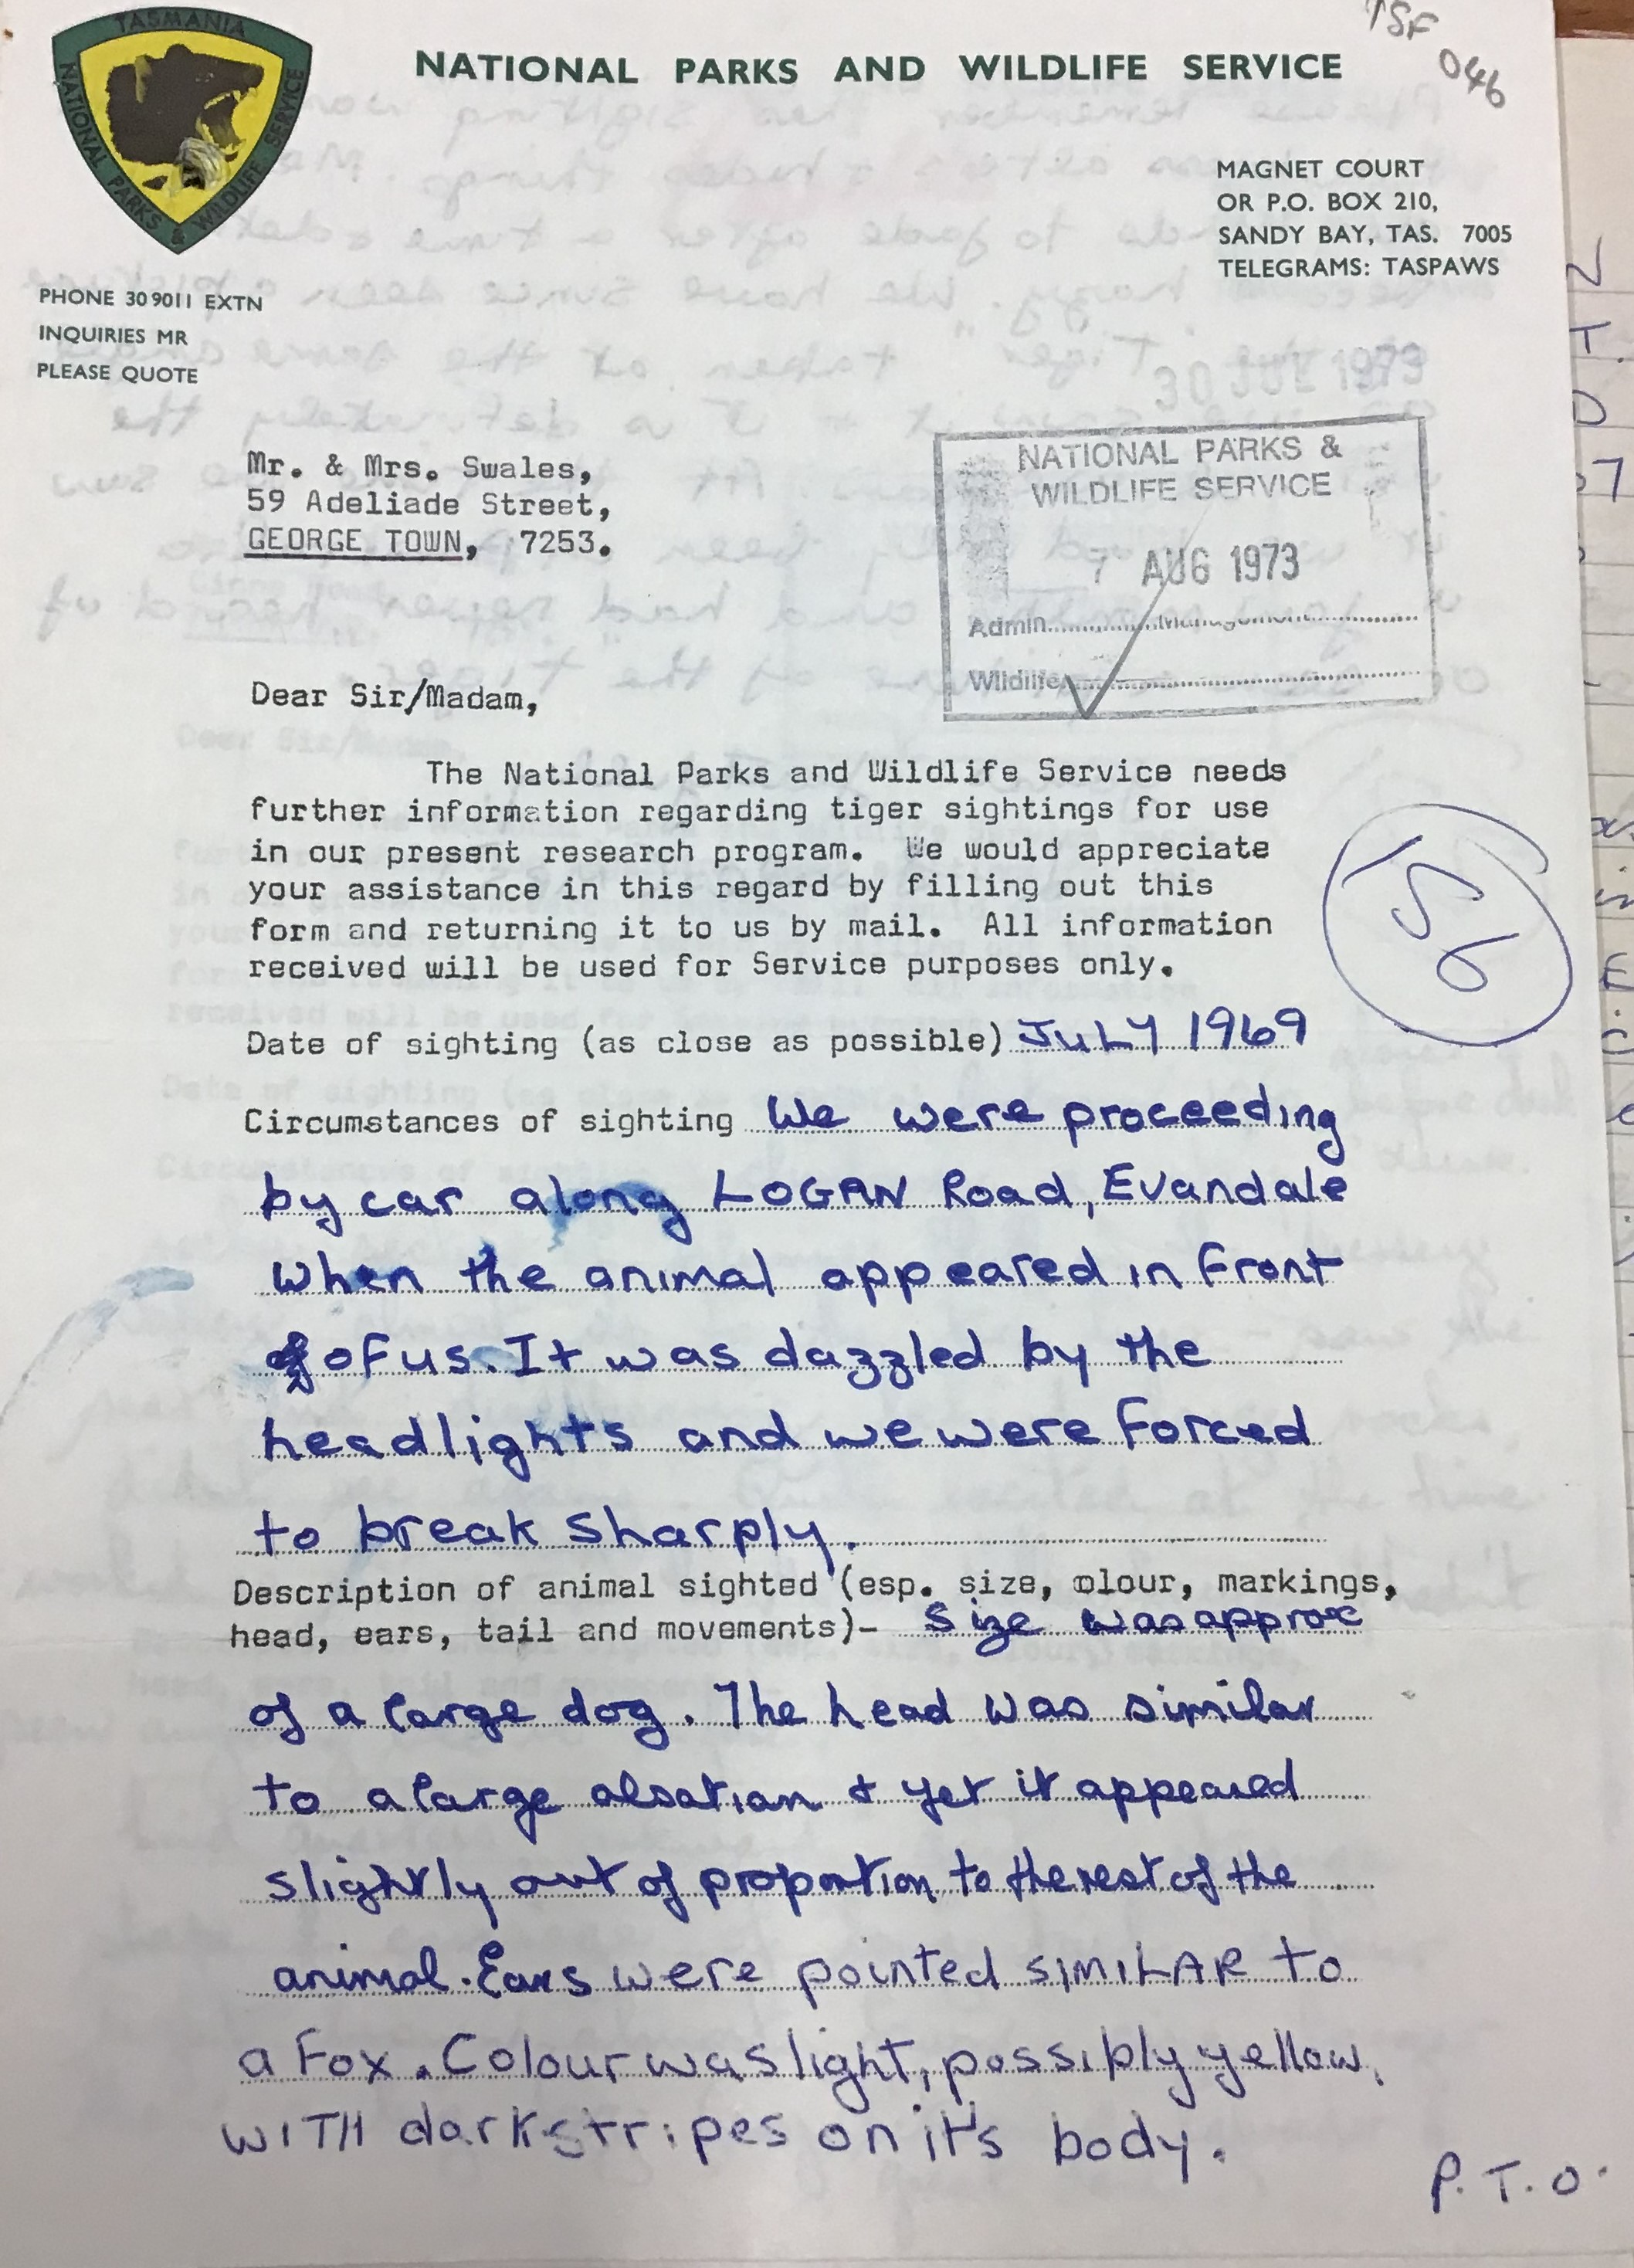 TASMANIA
NATIONAL PARKS & WILDLIFE SERVICE
NATIONAL PARKS AND WILDLIFE SERVICE
TSF
046
MAGNET COURT
OR P.O. BOX 210,
SANDY BAY, TAS. 7005
TELEGRAMS: TASPAWS
PHONE 30 9011 EXTN
INQUIRIES MR
PLEASE QUOTE
30 JUL 1973
Mr. & Mrs. Swales,
59 Adeliade Street,
GEORGE TOWN, 7253.
NATIONAL PARKS &
WILDLIFE SERVICE
7 AUG 1973
Admin. Management
Wildlife
Dear Sir/Madam,
The National Parks and Wildlife Service needs
further information regarding tiger sightings for use
in our present research program. We would appreciate
your assistance in this regard by filling out this
form and returning it to us by mail. All information
received will be used for Service purposes only.
56
Date of sighting (as close as possible) JULY 1969
Circumstances of sighting We were proceeding
by car along LOGAN Road, Evandale
when the animal appeared in front
of us. It was dazzled by the
headlights and we were forced
to break sharply.
Description of animal sighted (esp. size, olour, markings,
head, ears, tail and movements)- Size was approx
of a large dog. The head was similar
to a large alsatian + yet it appeared
slightly out of proportion to the rest of the
animal. Ears were pointed SIMILAR to
a Fox. Colour was light, possibly yellow,
WITH dark stripes on it's body.
P.T.O.